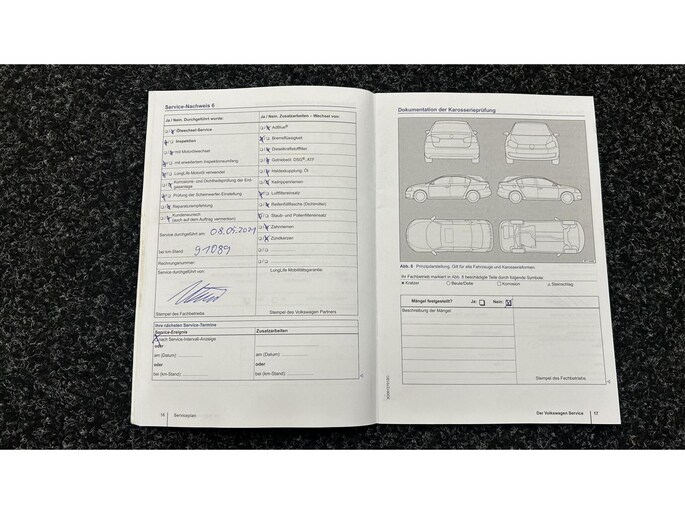 Service-Nachweis 6
Ja / Nein: Durchgeführt wurde:
Ölwechsel-Service
Inspektion
mit Motorölwechsel
mit erweitertem Inspektionsumfang
LongLife Motoröl verwendet
Korrosions- und Dichtheitsprüfung der Erdgasanlage
Prüfung der Scheinwerfer-Einstellung
Reparaturempfehlung
Kundenwunsch
(auch auf dem Auftrag vermerken)
Service durchgeführt am: 08.05.2021
bei km-Stand: 91089
Rechnungsnummer:
Service durchgeführt von:
Stempel des Fachbetriebs
Ja / Nein: Zusatzarbeiten – Wechsel von:
AdBlue®
Bremsflüssigkeit
Dieselkraftstofffilter
Getriebeöl: DSG®, ATF
Haldexkupplung: Öl
Keilrippenriemen
Luftfiltereinsatz
Reifenfüllflasche (Dichtmittel)
Staub- und Pollenfiltereinsatz
Zahnriemen
Zündkerzen
LongLife Mobilitätsgarantie:
Stempel des Volkswagen Partners
Ihre nächsten Service-Termine
Service-Ereignis
nach Service-Intervall-Anzeige
oder
am (Datum)
oder
bei (km-Stand):
Zusatzarbeiten:
am (Datum)
oder
bei (km-Stand):
16 Serviceplan
Dokumentation der Karosserieprüfung
Abb. 8 Prinzipdarstellung: Gilt für alle Fahrzeuge und Karosserieformen.
Ihr Fachbetrieb markiert in Abb. 8 beschädigte Teile durch folgende Symbole:
Kratzer
Beule/Delle
Korrosion
Steinschlag
Mängel festgestellt? Ja: Nein:
Beschreibung der Mängel:
Stempel des Fachbetriebs
Der Volkswagen Service 17